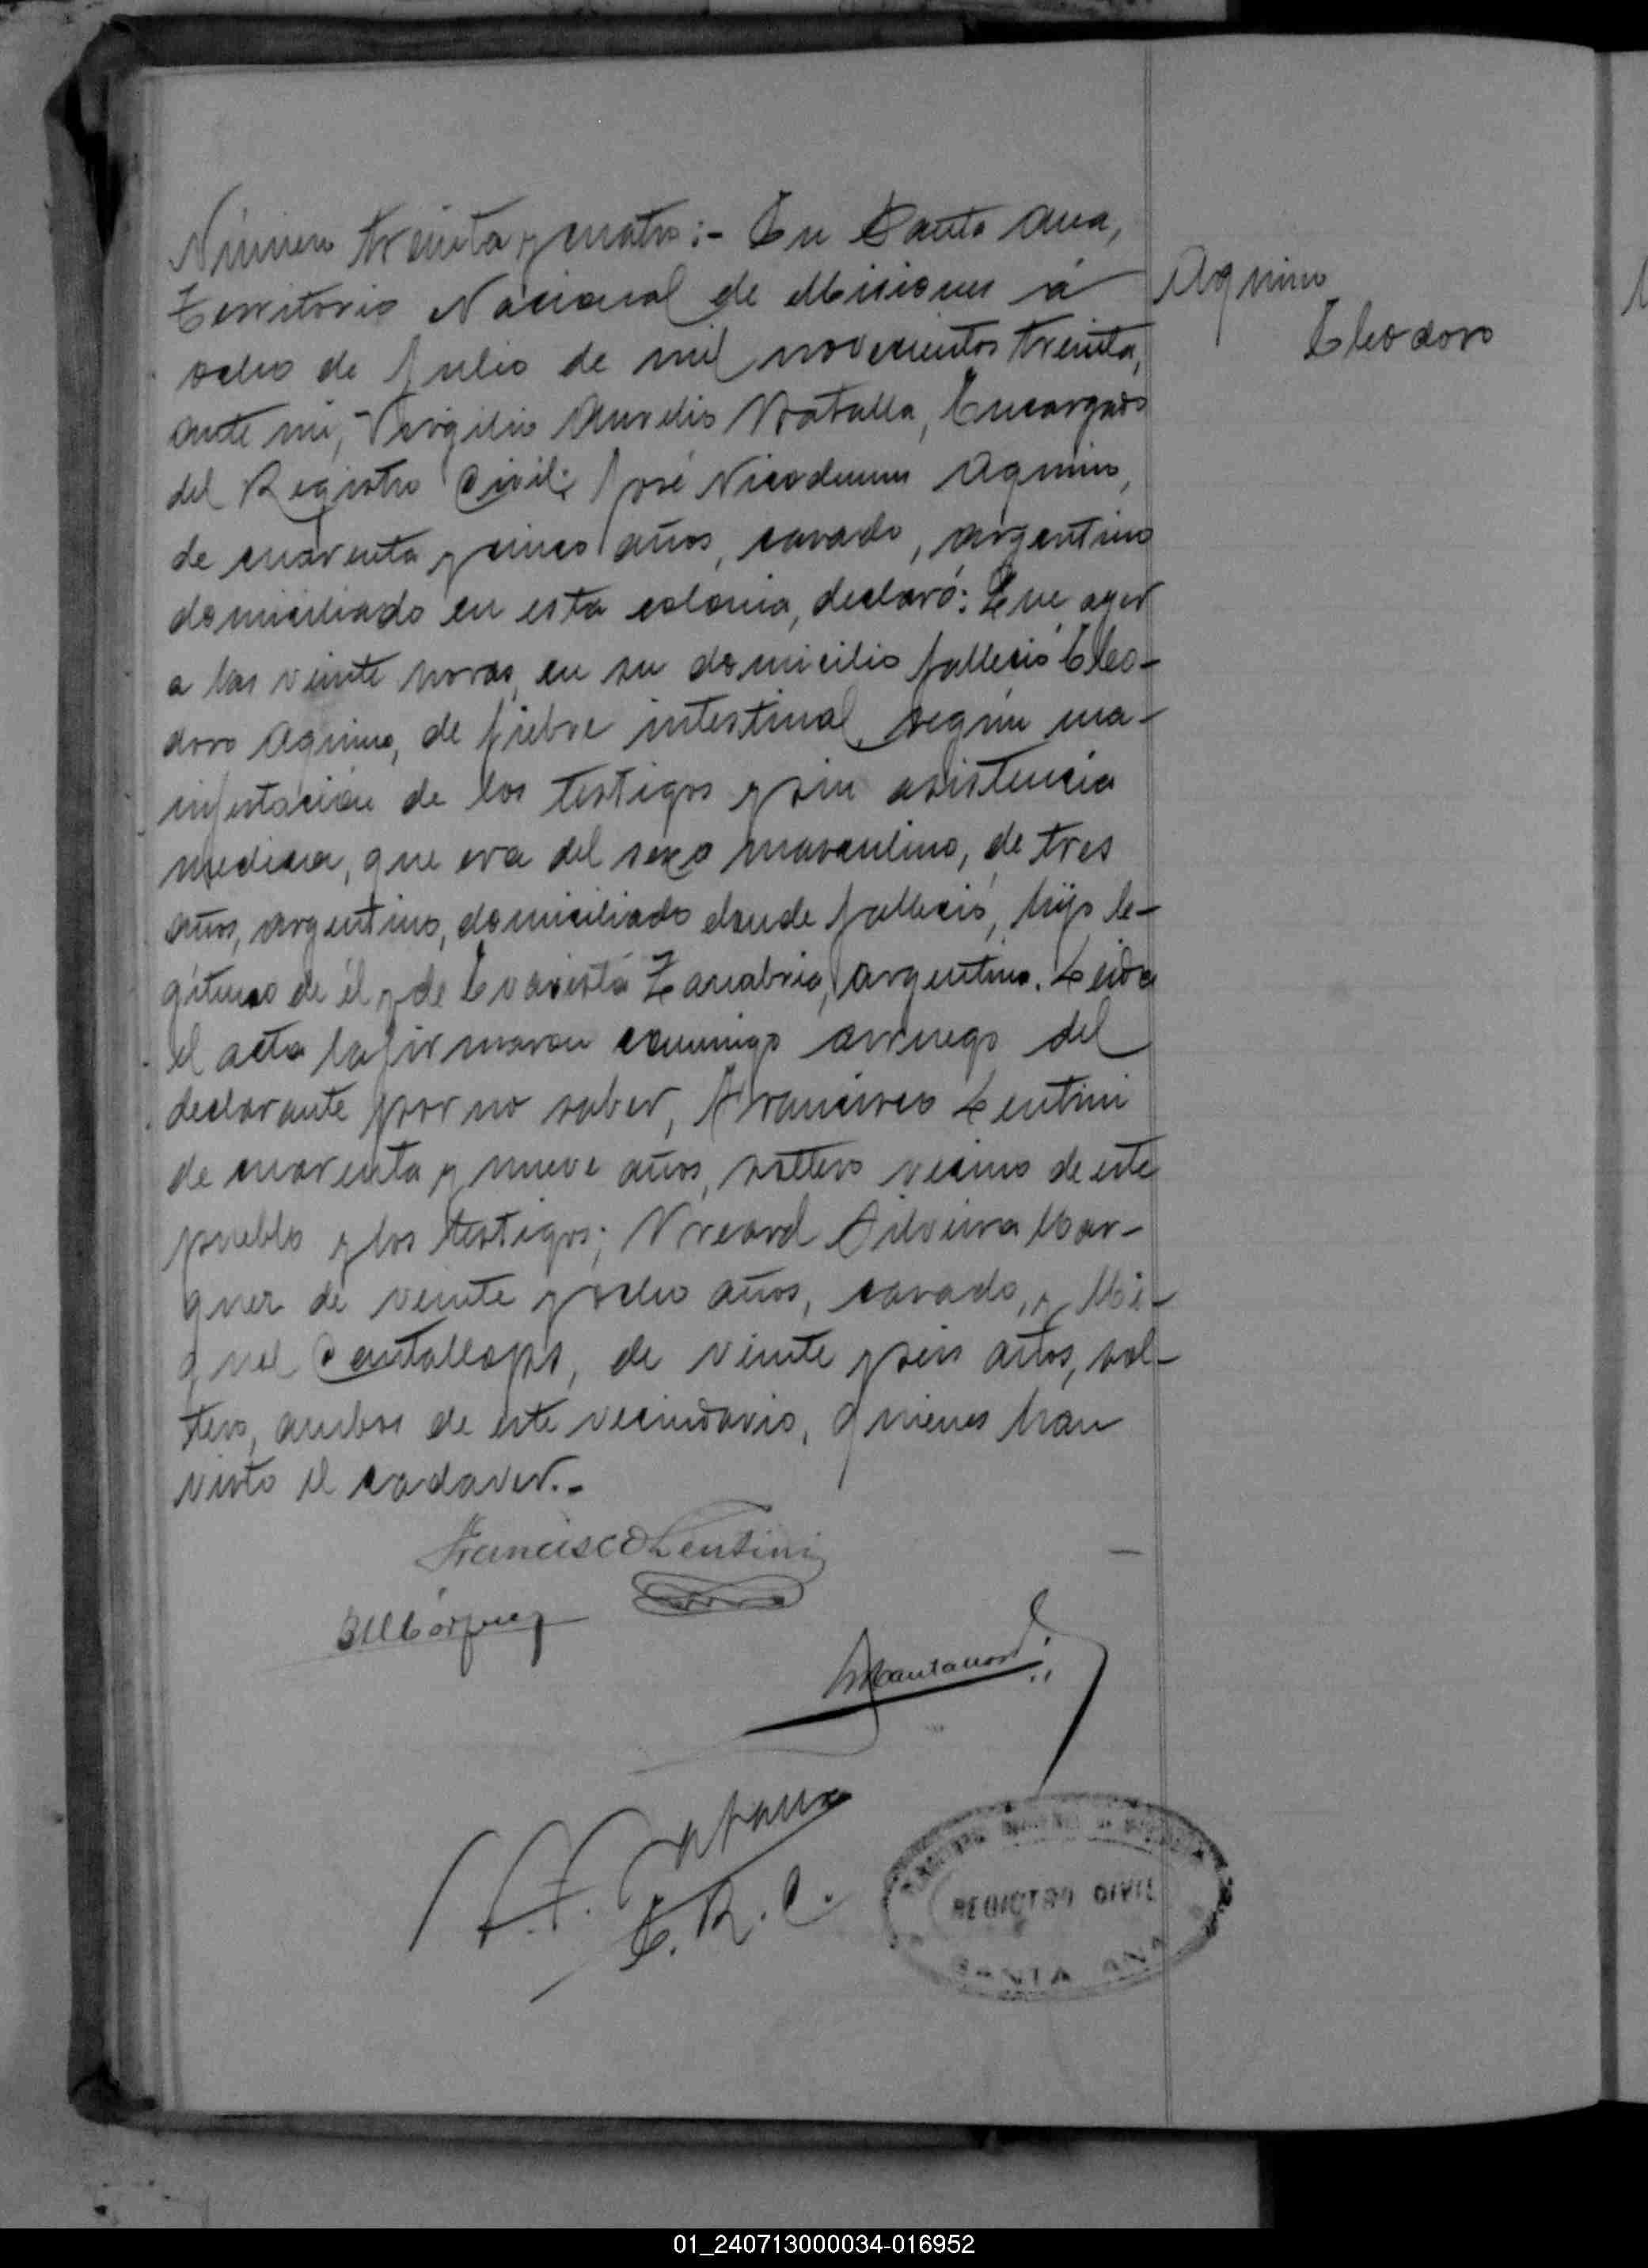 Número treinta y cuatro:- En Santa Ana,
Territorio Nacional de Misiones á
ocho de Julio de mil novecientos treinta,
ante mi, Virgilio Aurelio Batalla, Encargado
del Registro Civil; José Nicodemus Aquino,
de cuarenta y cinco años, casado, argentino
domiciliado en esta colonia, declaró: Que ayer
a las veinte horas, en su domicilio falleció Eleo-
doro Aquino, de fiebre intestinal, según ma-
nifestación de los testigos y sin asistencia
medica, que era del sexo masculino, de tres
años, argentino, domiciliado donde falleció, hijo le-
gítimo de él y de Evarista Zanabria, argentina. Leida
el acta la firmaron conmigo a ruego del
declarante por no saber, Francisco Lentini
de cuarenta y nueve años, soltero vecino de este
pueblo y los testigos; Silveira Mar-
quez de veinte y ocho años, casado, y Mi-
guel Cantallops, de veinte y seis años, sol-
tero, ambos de este vecindario, quienes han
visto el cadaver.-
Aquino
Eleodoro
Francisco Lentini
E. R. C.
REGISTRO CIVIL
SANTA ANA
01_240713000034-016952